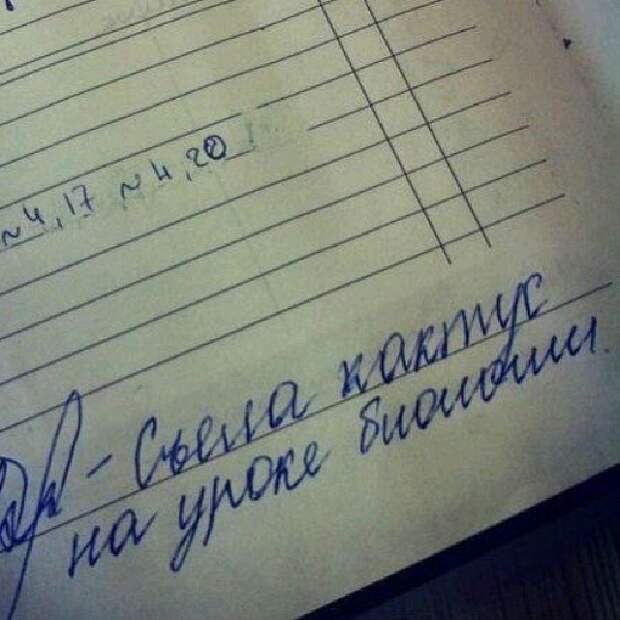 ~4,17 ~4,20
- Съела кактус
на уроке биологии.